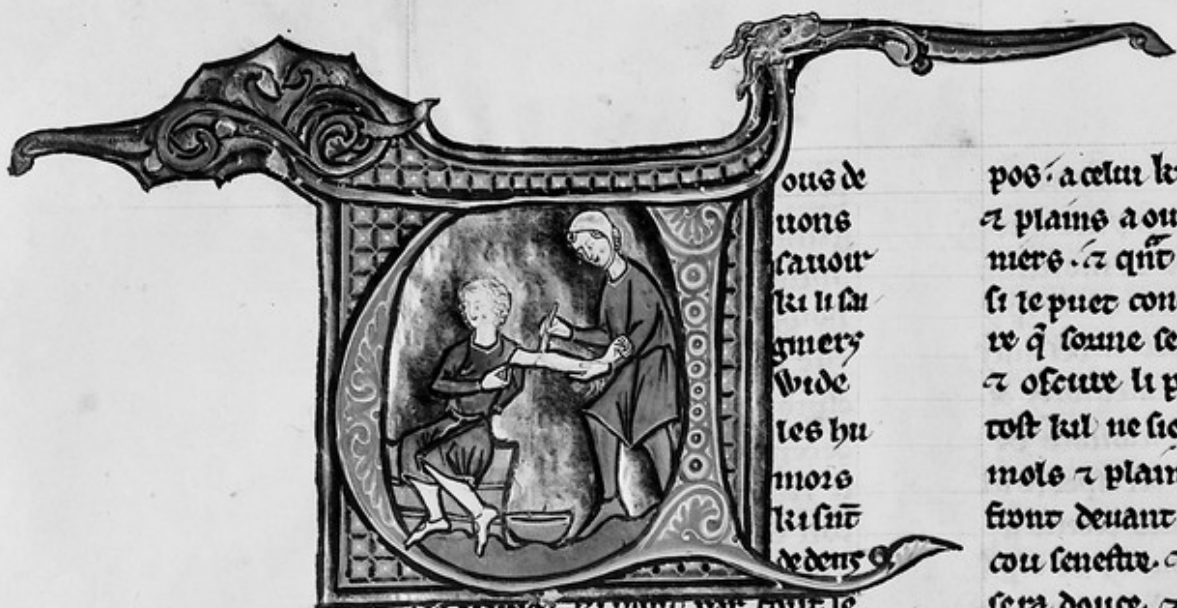 ous de
uons
sauoir
ki li sai
gniers
wide
les hu
mors
ki sūt
dedens
tout le
pos · a celui
⁊ plains a
niers · ⁊ qnt
si le puet con
re q̄ soune se
⁊ oscure li
tost kil ne
mols ⁊ plain
front deuant
cou senestre ·
sera douce ·